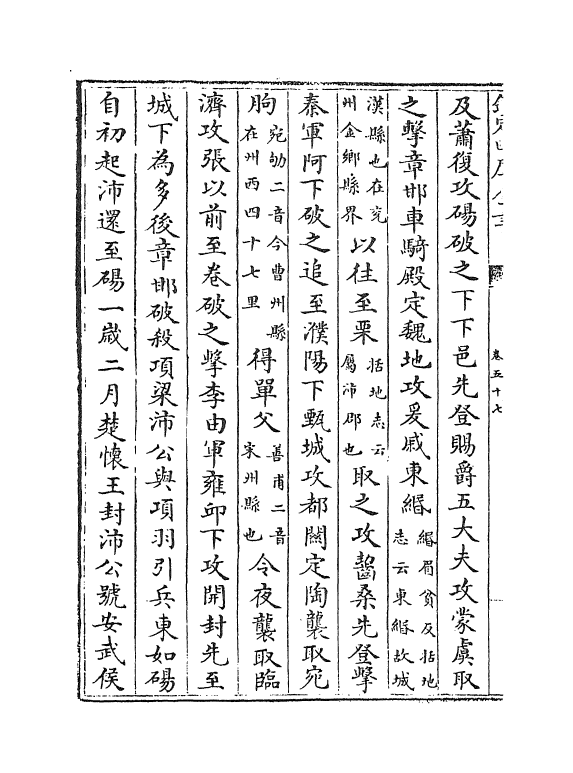 卷五十七
及蕭復攻碭破之下下邑先登賜爵五大夫攻蒙虞取
之擊章邯車騎殿定魏地攻爰戚東緡緡眉貧反括地志云東緡故城
漢縣也在兖州金鄉縣界以往至栗括地志云屬沛郡也取之攻齧桑先登擊
秦軍阿下破之追至濮陽下甄城攻都關定陶襲取宛
朐宛劬二音今曹州縣在州西四十七里得單父善甫二音宋州縣也令夜襲取臨
濟攻張以前至卷破之擊李由軍雍丘下攻開封先至
城下為多後章邯破殺項梁沛公與項羽引兵東如碭
自初起沛還至碭一歳二月楚懐王封沛公號安武侯